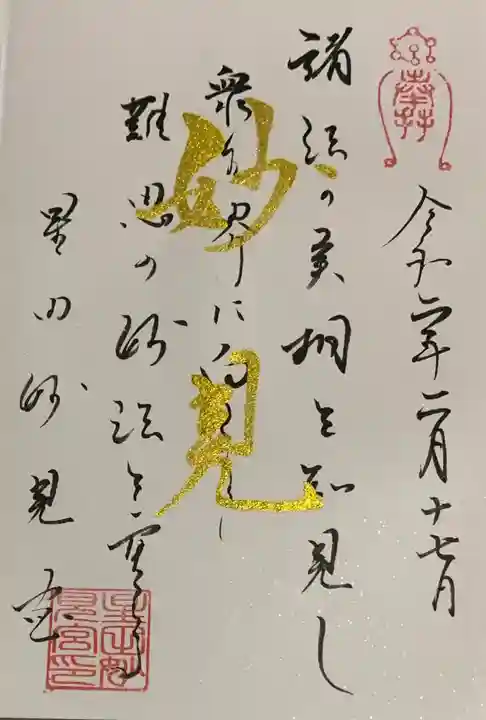 奉拝
令和二年二月十七日
諸法の実相を知見し
衆生界に
難思の妙法を
星田妙見宮
妙見
星田妙見宮印